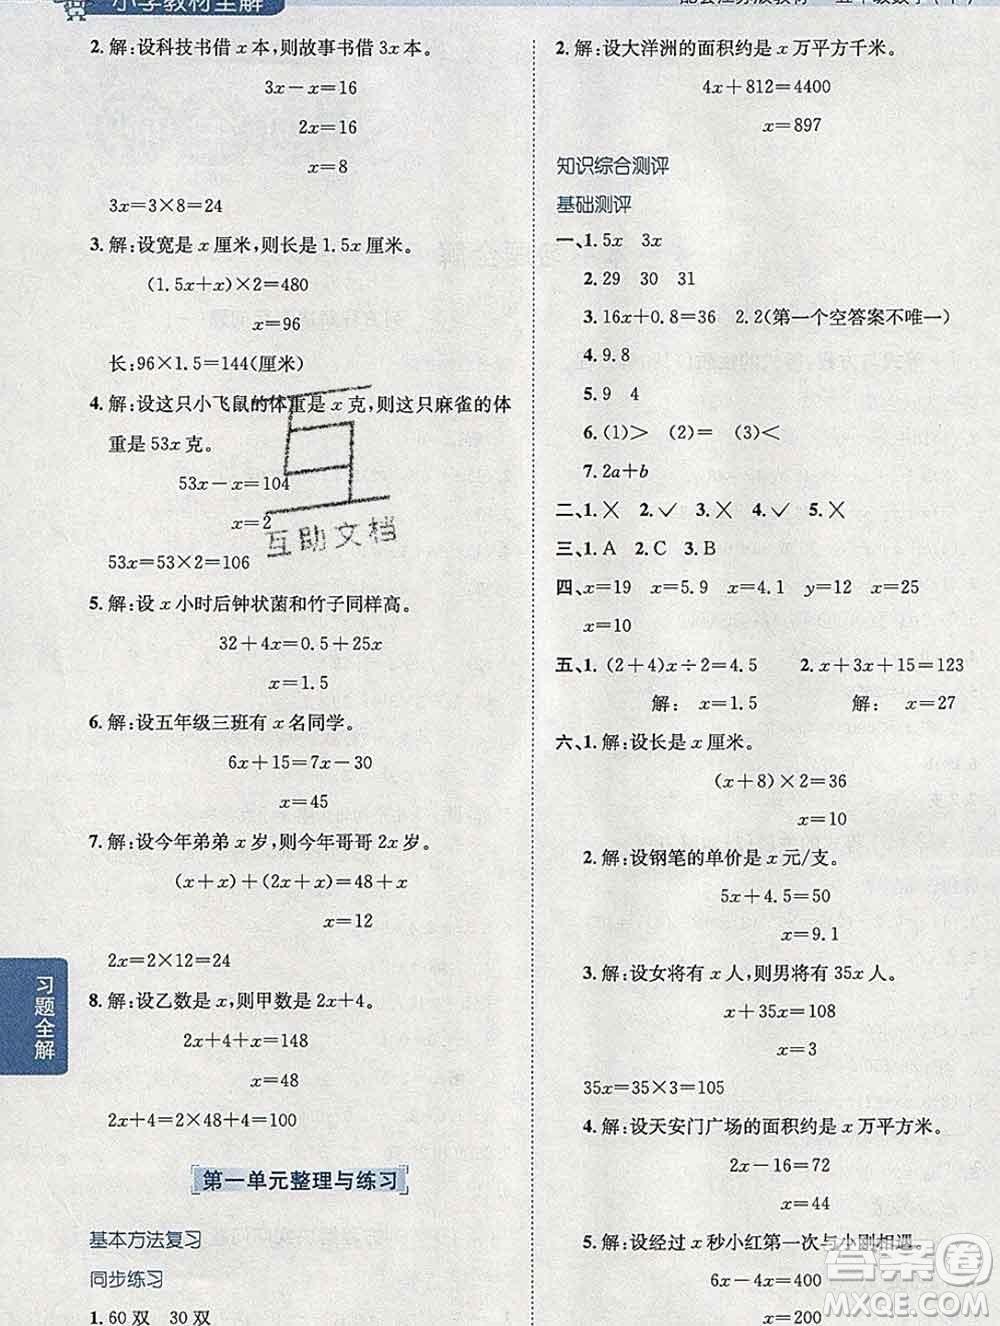 小学教材全解
2. 解:设科技书借 x 本,则故事书借 3x 本。
3x－x=16
2x=16
x=8
3x=3×8=24
3. 解:设宽是 x 厘米,则长是 1.5x 厘米。
(1.5x+x)×2=480
x=96
长:96×1.5=144(厘米)
4. 解:设这只小飞鼠的体重是 x 克,则这只麻雀的体
重是 53x 克。
53x－x=104
x=2
53x=53×2=106
5. 解:设 x 小时后钟状菌和竹子同样高。
32+4x=0.5+25x
x=1.5
6. 解:设五年级三班有 x 名同学。
6x+15=7x－30
x=45
7. 解:设今年弟弟 x 岁,则今年哥哥 2x 岁。
(x+x)+(2x+x)=60
x=12
2x=2×12=24
8. 解:设乙数是 x,则甲数是 2x+4。
2x+4+x=148
x=48
2x+4=2×48+4=100
第一单元整理与练习
基本方法复习
同步练习
1. 60 双 30 双
习题全解
互助文档
2. 解:设大洋洲的面积约是 x 万平方千米。
4x+812=4400
x=897
知识综合测评
基础测评
一、1. 5x 3x
2. 29 30 31
3. 16x+0.8=36 2.2(第一个空答案不唯一)
4. 9.8
5. 9 4
6. (1)> (2)= (3)<
7. 2a+b
二、1. ✕ 2. ✓ 3. ✕ 4. ✓ 5. ✕
三、1. A 2. C 3. B
四、x=19 x=5.9 x=7.5 y=12 x=25
x=10
五、1. (2+4)x÷2=4.5 2. x+3x+15=123
解: x=1.5 解: x=27
六、1. 解:设长是 x 厘米。
(x+8)×2=36
x=10
2. 解:设钢笔的单价是 x 元/支。
5x+4.5=50
x=9.1
3. 解:设女将有 x 人,则男将有 35x 人。
x+35x=108
x=3
35x=35×3=105
4. 解:设天安门广场的面积约是 x 万平方米。
2x－16=72
x=44
5. 解:设经过 x 秒小红第一次与小刚相遇。
6x－4x=400
x=200
答案圈
MXQE.COM